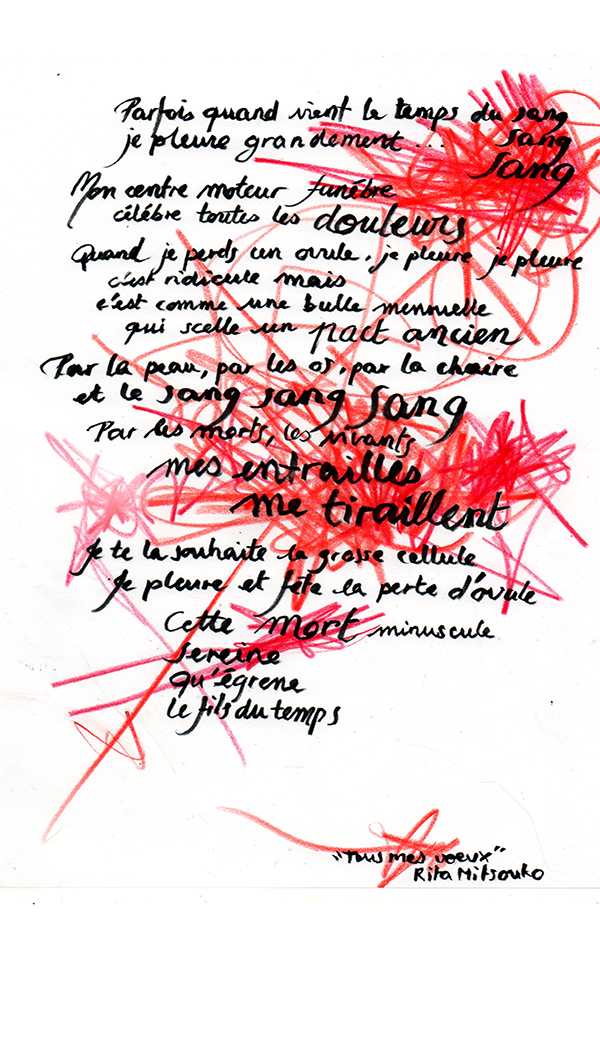 Parfois quand vient le temps du sang
je pleure grandement ... sang
sang
Mon centre moteur funèbre
célèbre toutes les douleurs
Quand je perds un ovule, je pleure je pleure
c'est ridicule mais
c'est comme une bulle mensuelle
qui scelle un pact ancien
Par la peau, par les os, par la chaire
et le sang sang sang
Par les morts, les vivants
mes entrailles
me tiraillent
Je te la souhaite la grosse cellule
Je pleure et fête la perte d'ovule
Cette mort minuscule
sereine
qu'égrene
le fils du temps
"Tous mes voeux"
Rita Mitsouko